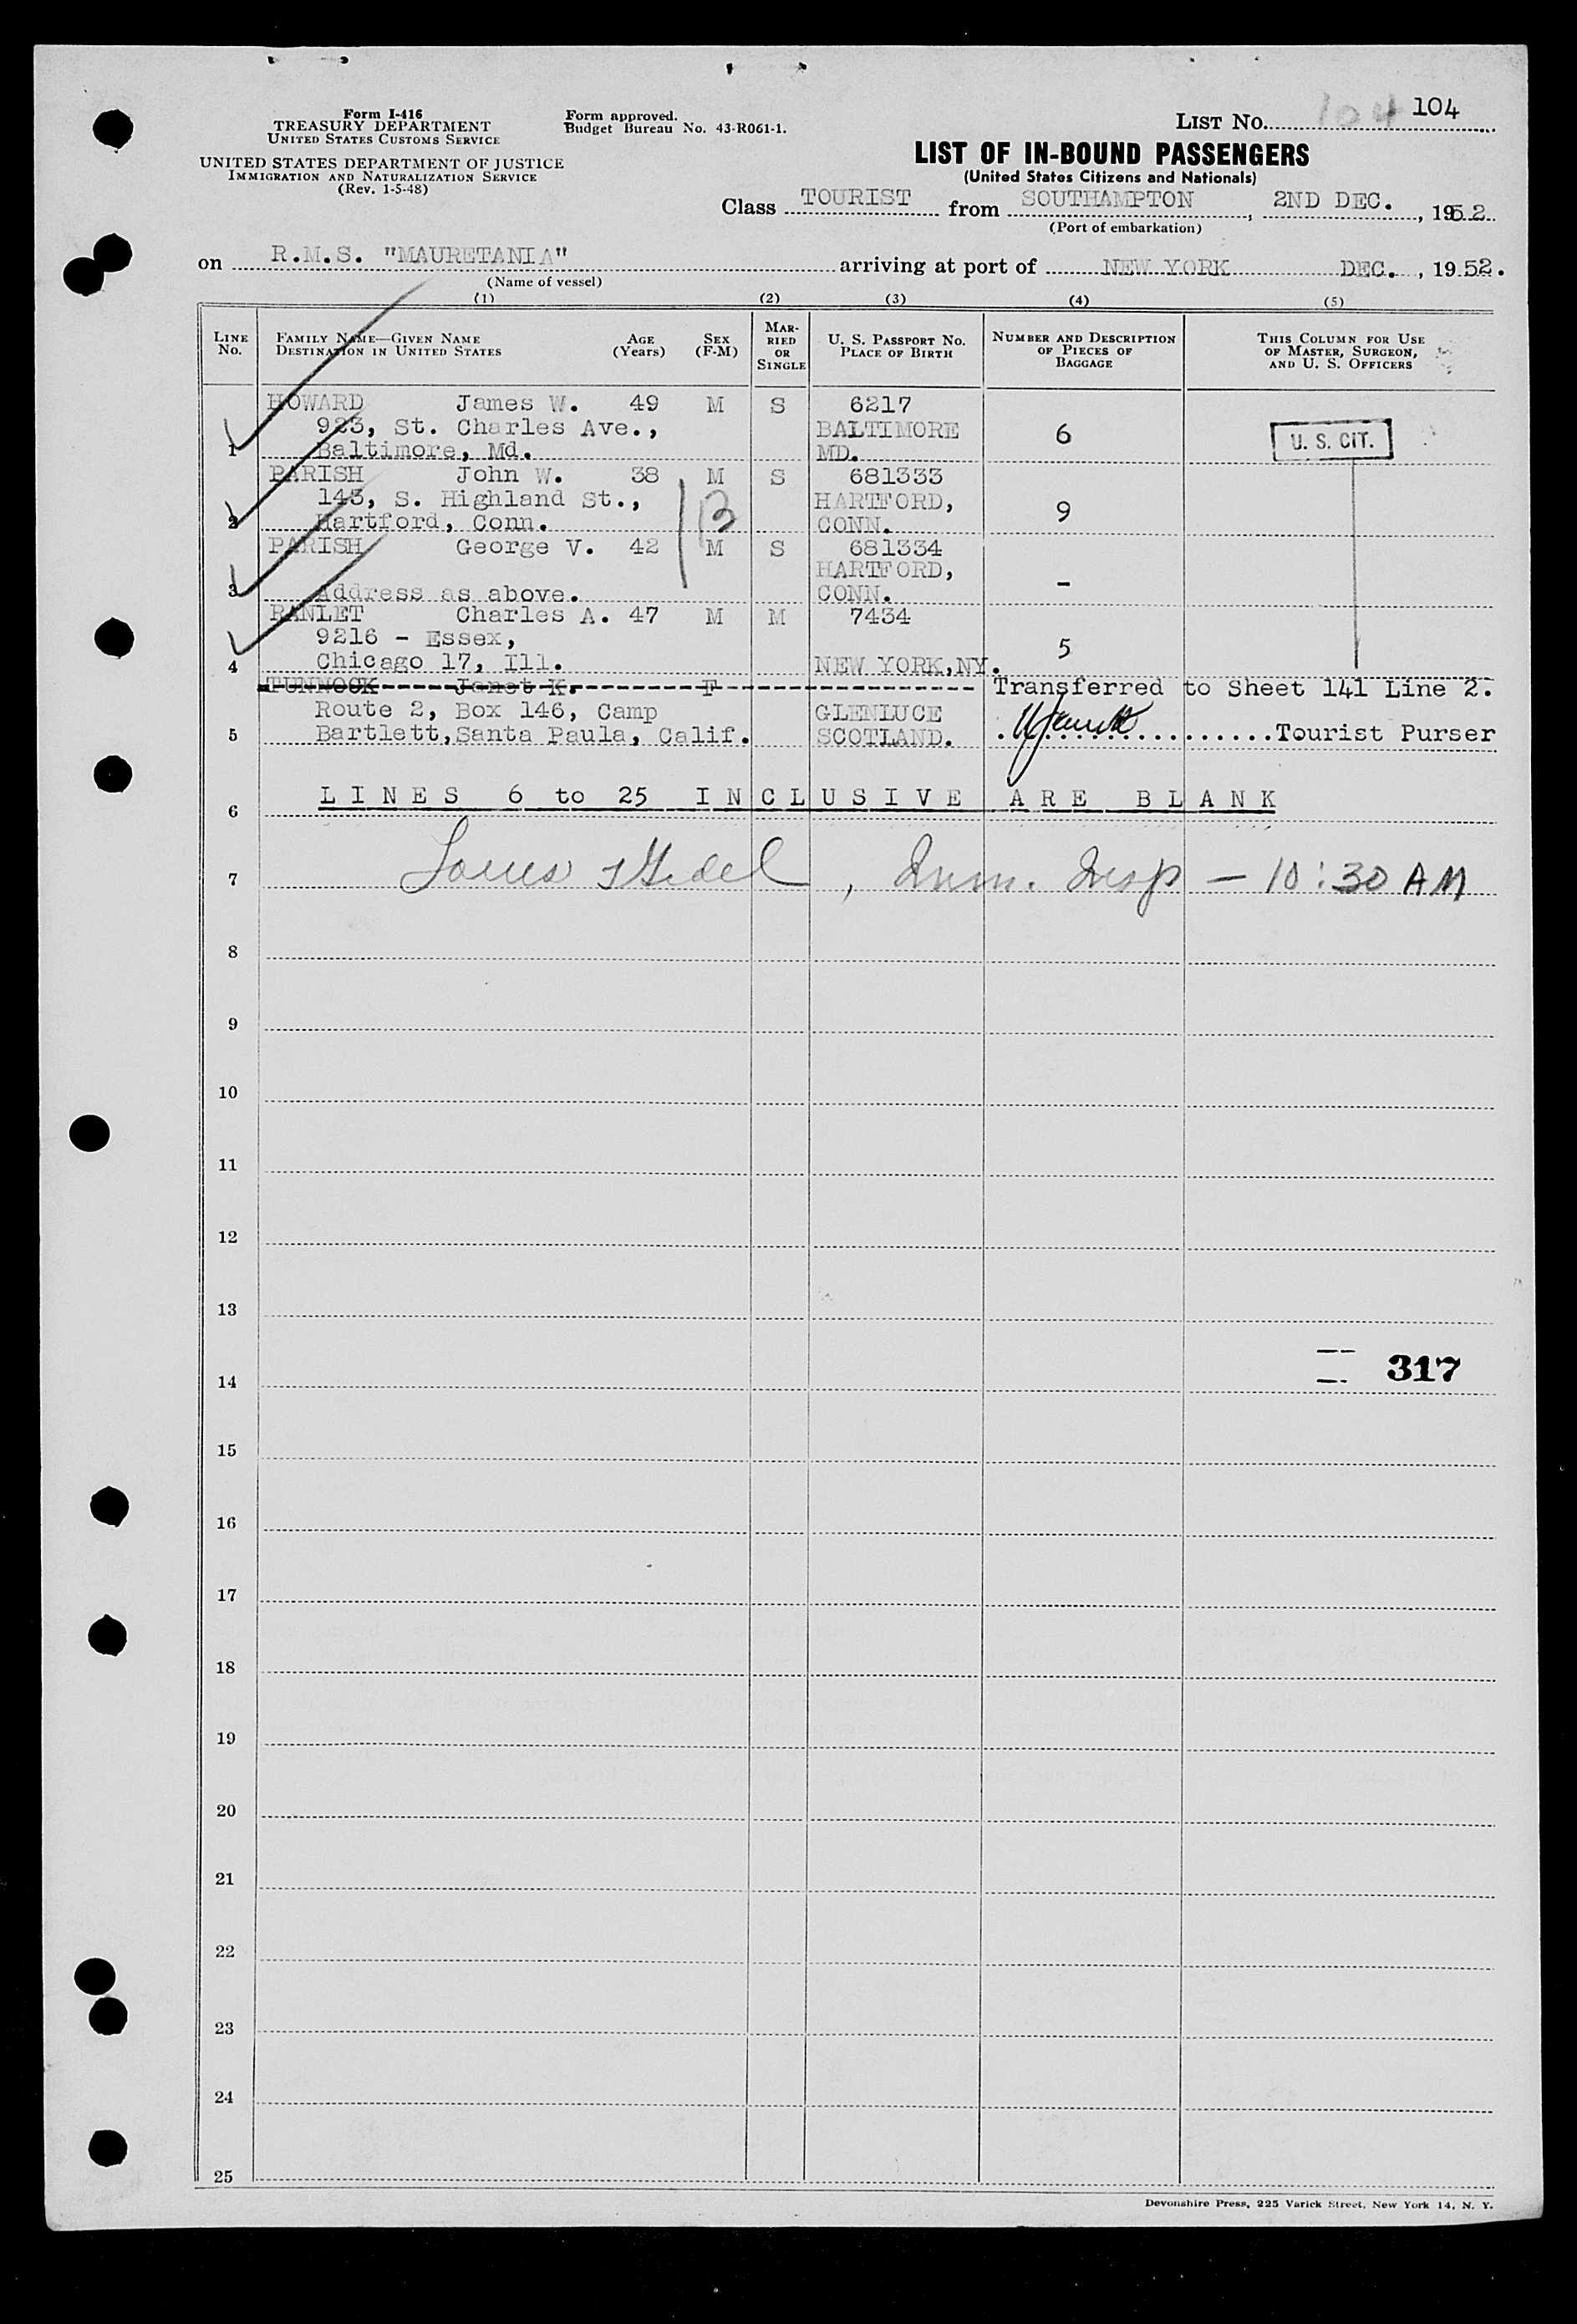 Form I-416
TREASURY DEPARTMENT
UNITED STATES CUSTOMS SERVICE
UNITED STATES DEPARTMENT OF JUSTICE
IMMIGRATION AND NATURALIZATION SERVICE
(Rev. 1-5-48)
Form approved.
Budget Bureau No. 43-R061-1.
LIST No. 104 104
LIST OF IN-BOUND PASSENGERS
(United States Citizens and Nationals)
Class TOURIST from SOUTHAMPTON, 2ND DEC., 1952
(Port of embarkation)
on R.M.S. "MAURETANIA" arriving at port of NEW YORK DEC., 1952.
(Name of vessel)
(1) (2) (3) (4) (5)
LINE No.
FAMILY NAME—GIVEN NAME
DESTINATION IN UNITED STATES
AGE (Years)
SEX (F-M)
MARRIED OR SINGLE
U. S. PASSPORT No.
PLACE OF BIRTH
NUMBER AND DESCRIPTION OF PIECES OF BAGGAGE
THIS COLUMN FOR USE OF MASTER, SURGEON, AND U. S. OFFICERS
HOWARD James W. 49 M S 6217
923, St. Charles Ave., BALTIMORE 6 U. S. CIT.
1 Baltimore, Md. MD.
PARISH John W. 38 M S 681333
143, S. Highland St., HARTFORD, 9
2 Hartford, Conn. CONN.
PARISH George V. 42 M S 681334
HARTFORD,
3 Address as above. CONN. -
RANLET Charles A. 47 M M 7434
9216 - Essex, 5
4 Chicago 17, Ill. NEW YORK,NY.
TUNNOCK Janet K. F Transferred to Sheet 141 Line 2.
Route 2, Box 146, Camp GLENLUCE
5 Bartlett,Santa Paula, Calif. SCOTLAND. Tourist Purser
6 LINES 6 to 25 INCLUSIVE ARE BLANK
7 , Imm. Insp — 10:30 AM
8
9
10
11
12
13
14 317
15
16
17
18
19
20
21
22
23
24
25
Devonshire Press, 225 Varick Street, New York 14, N. Y.